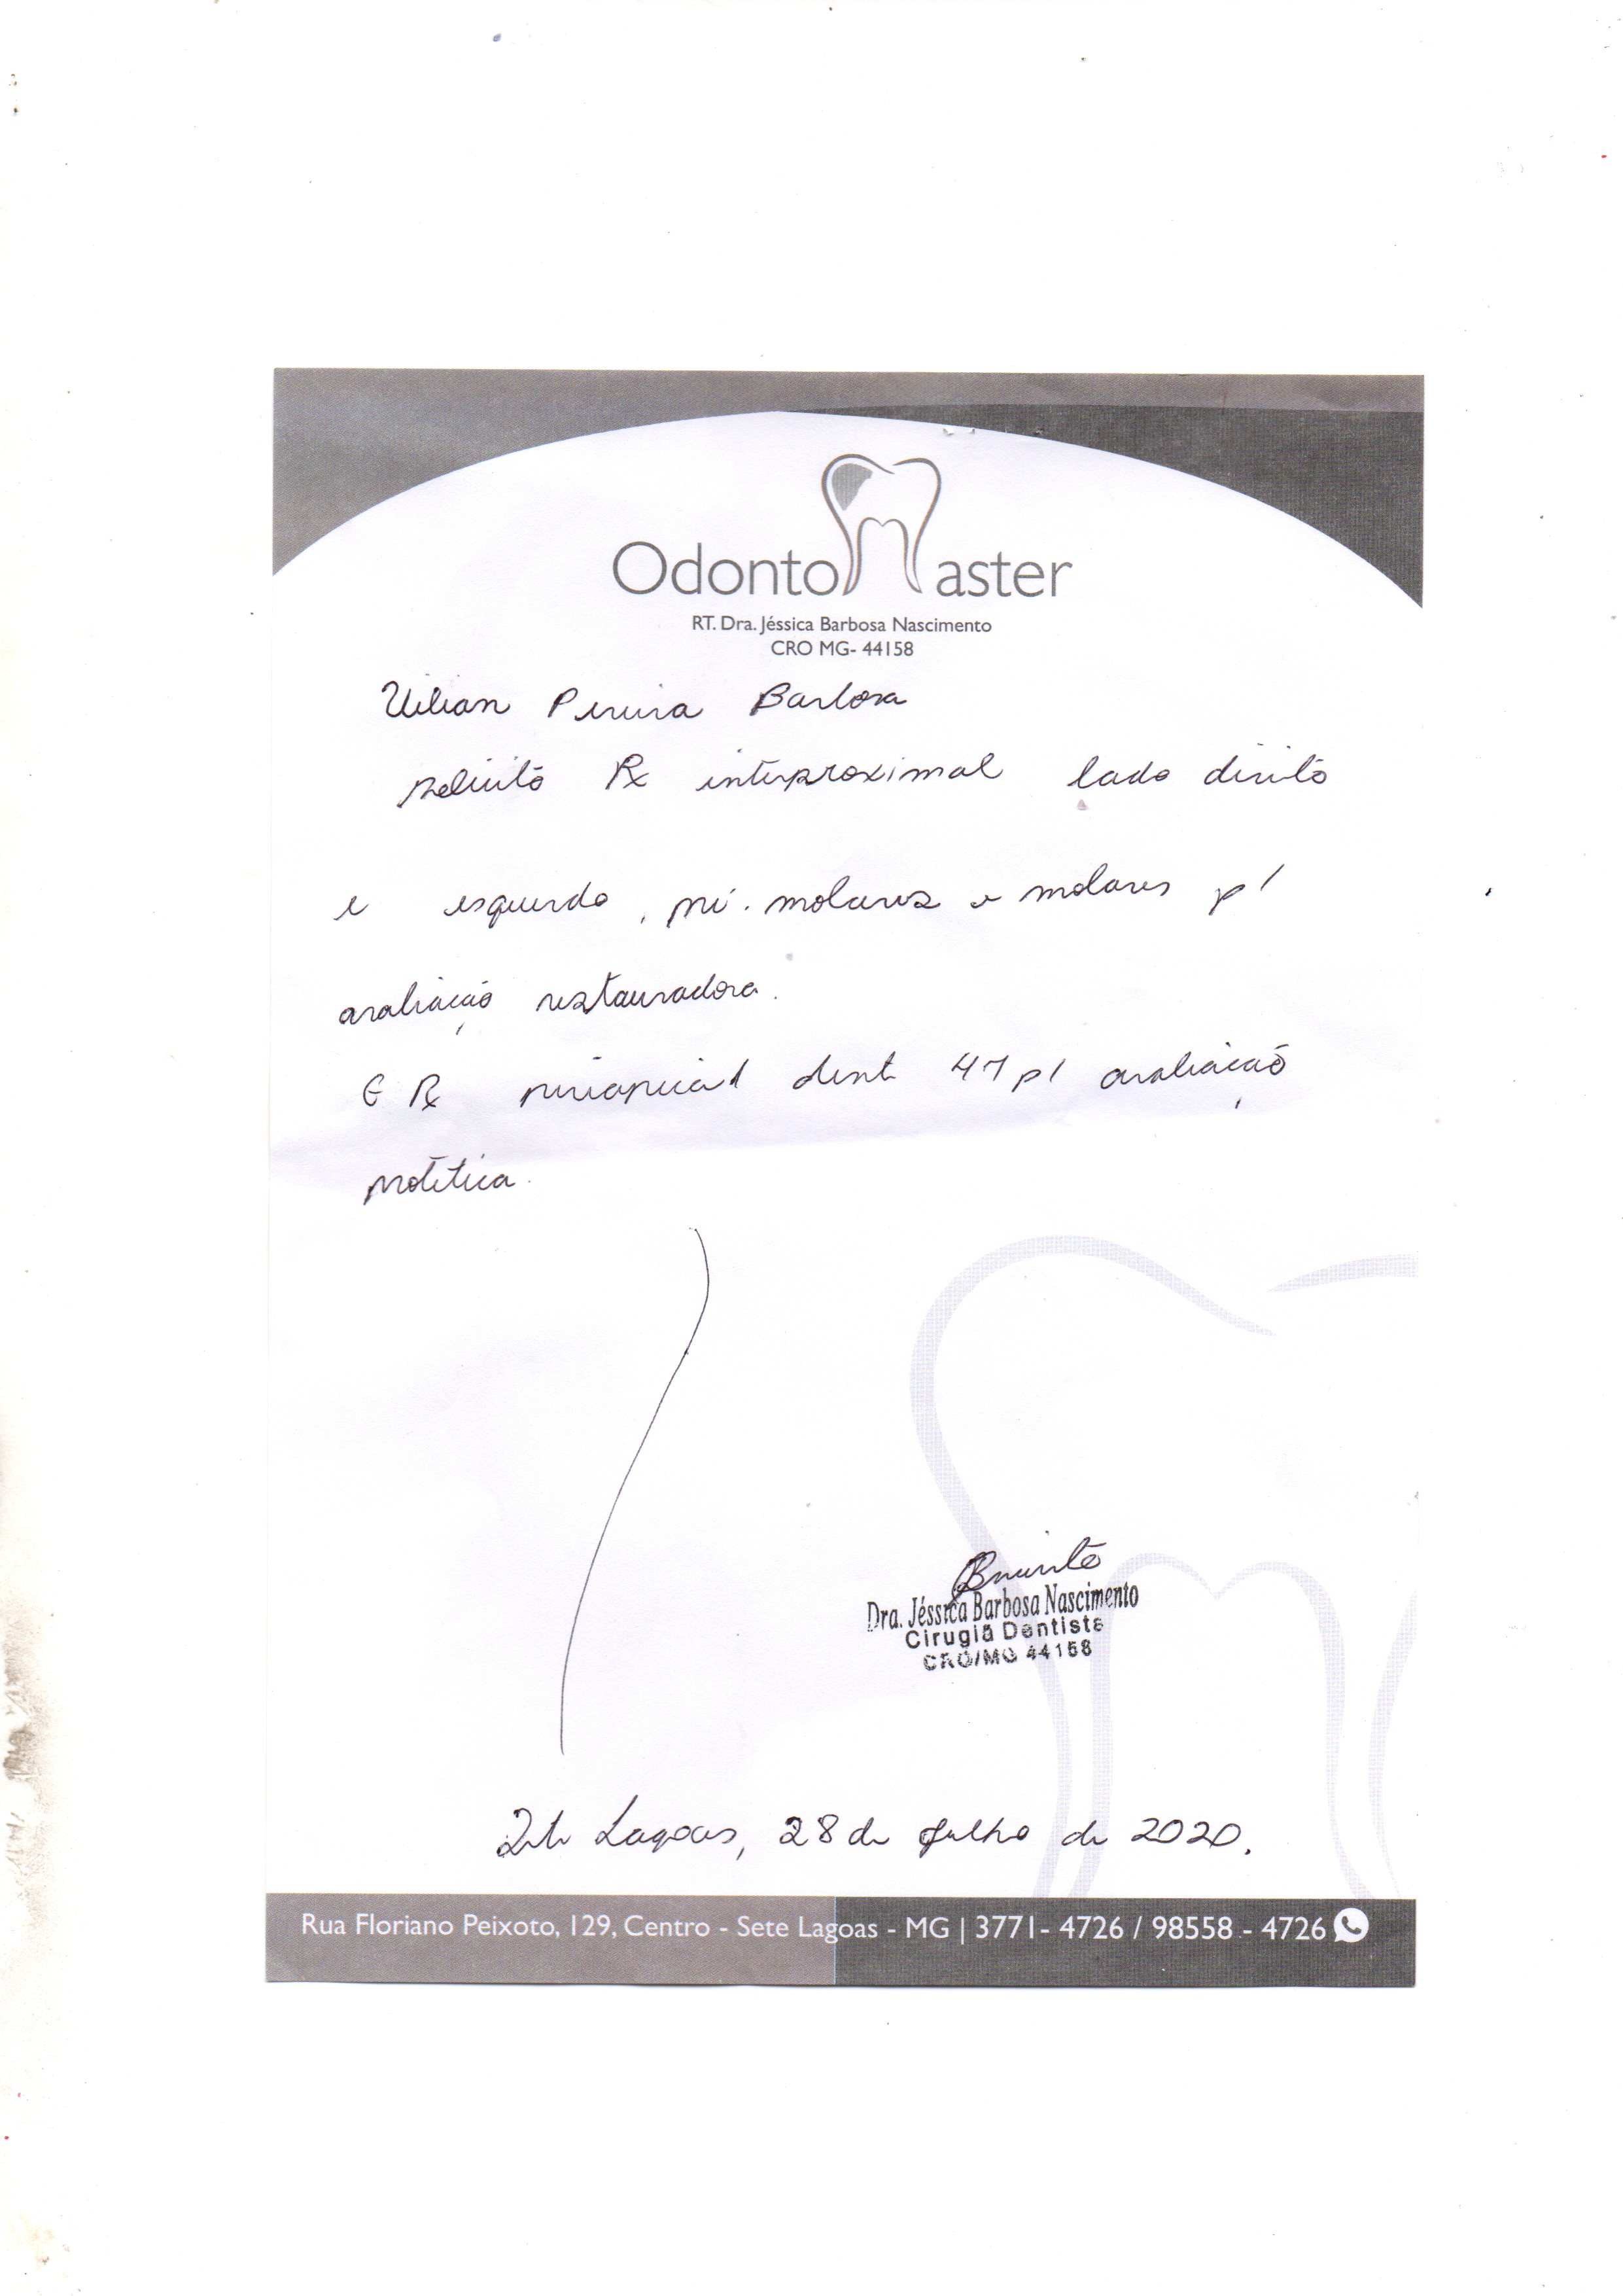 Odonto Master
RT. Dra. Jéssica Barbosa Nascimento
CRO MG- 44158
Uilian Pereira Barbosa
Solicito Rx interproximal lado direito
e esquerdo, pré-molares e molares p/
avaliação restauradora.
E Rx periapical dente 47 p/ avaliação
protética.
Dra. Jéssica Barbosa Nascimento
Cirugiã Dentista
CRO/MG 44158
Sete Lagoas, 28 de Julho de 2020.
Rua Floriano Peixoto, 129, Centro - Sete Lagoas - MG | 3771- 4726 / 98558 - 4726